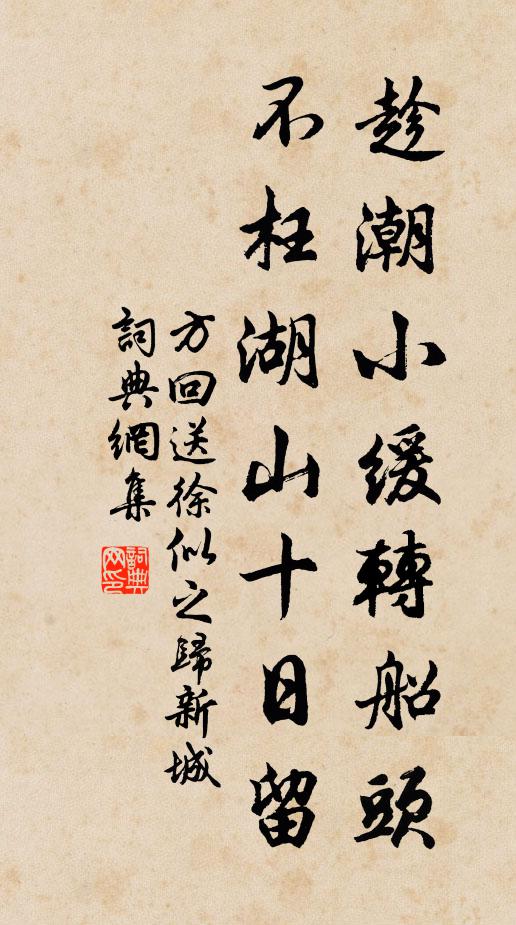 趁潮小緩轉船頭
不枉湖山十日留
方回送徐似之歸新城
詞典網集
詞典网印